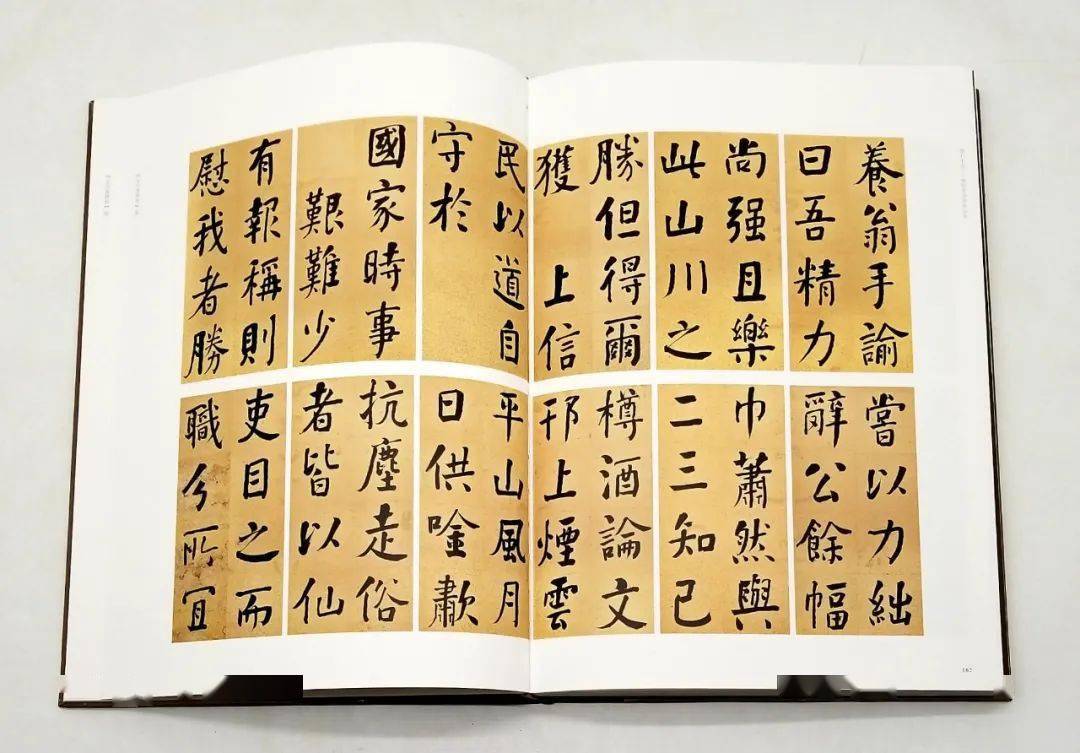 養翁手諭
曰吾精力
尚强且樂
此山川之
勝但得爾
獲 上信
民以道自
守於
國家時事
艱難少
有報稱則
慰我者勝
嘗以力絀
辭公餘幅
巾蕭然與
二三知己
樽酒論文
邗上煙雲
平山風月
日供唫歗
抗塵走俗
者皆以仙
吏目之而
職今所宜